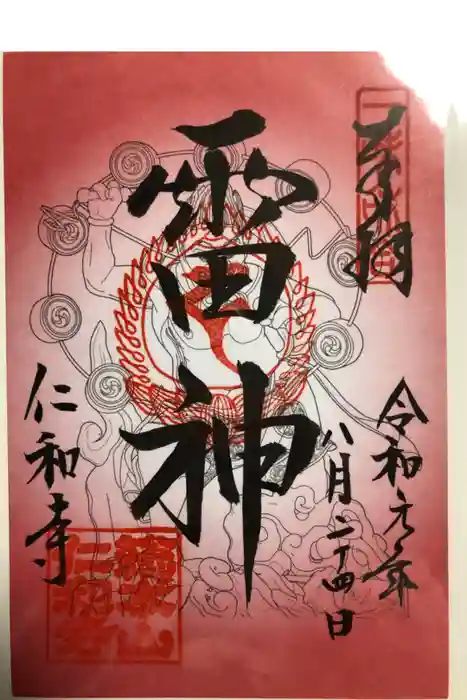 奉拝
令和元年
八月二十四日
雷神
仁和寺